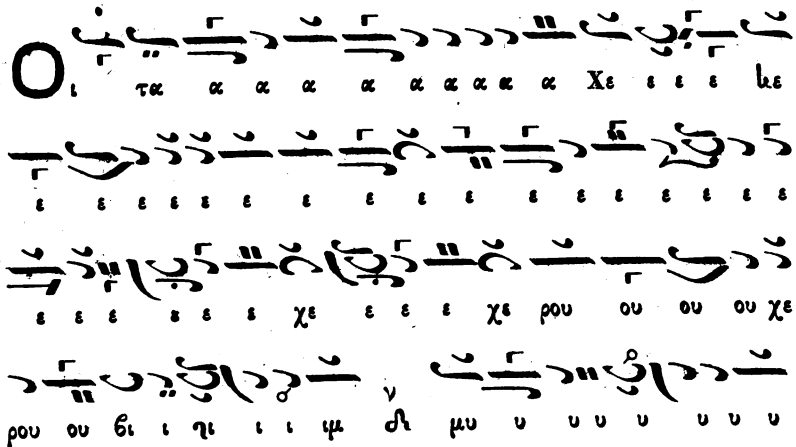 Οι τα α α α α α α α α α Χε ε ε ε ϗε
ε ε ε ε ε ε ε ε ε ε ε ε ε ε ε ε ε
ε ε ε ε ε ε χε ε ε ε χε ρου ου ου ου χε
ρου ου βι ι ηι ι ι ιμ ν μυ υ υ υ υ υ υ υ